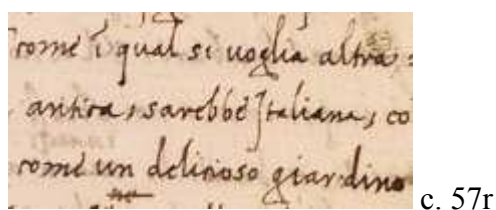 come ĩ qual si uoglia altra
antica, sarebbe Italiana, co
come un delicioso giardino c. 57r